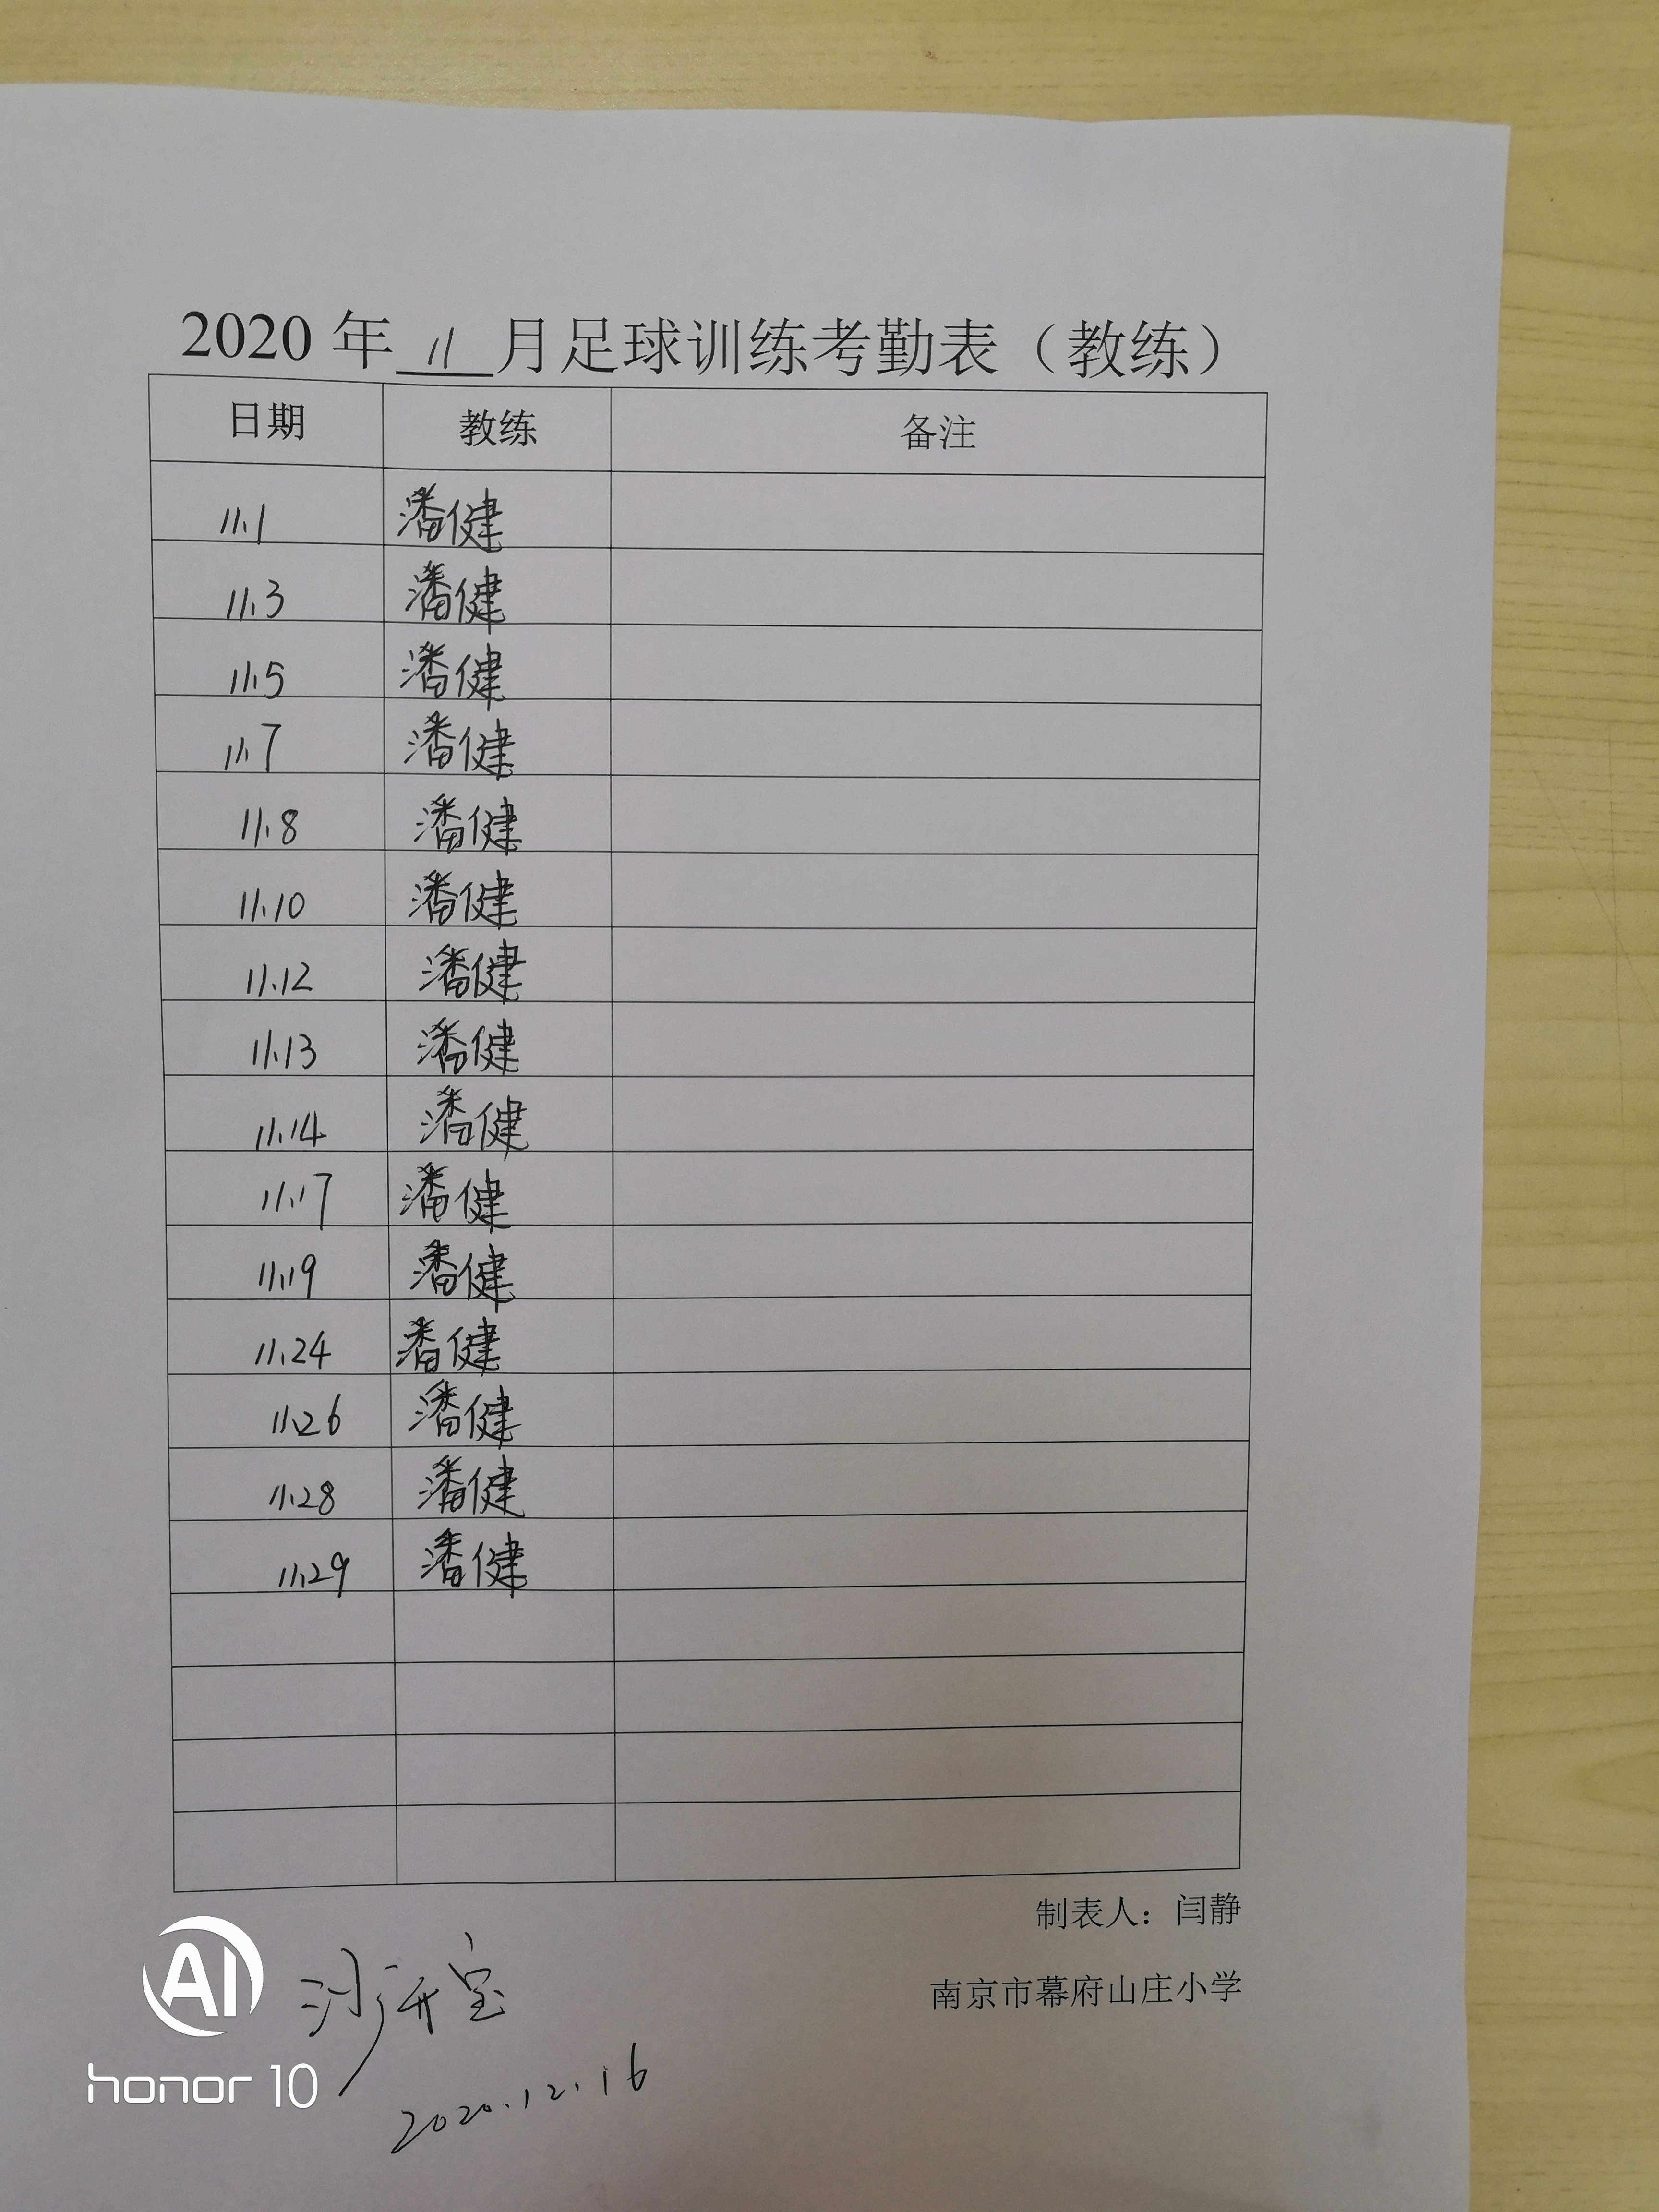 2020 年 11 月足球训练考勤表（教练）
日期 教练 备注
11.1 潘健
11.3 潘健
11.5 潘健
11.7 潘健
11.8 潘健
11.10 潘健
11.12 潘健
11.13 潘健
11.14 潘健
11.17 潘健
11.19 潘健
11.24 潘健
11.26 潘健
11.28 潘健
11.29 潘健
制表人：闫静
南京市幕府山庄小学
2020.12.16
AI
honor 10